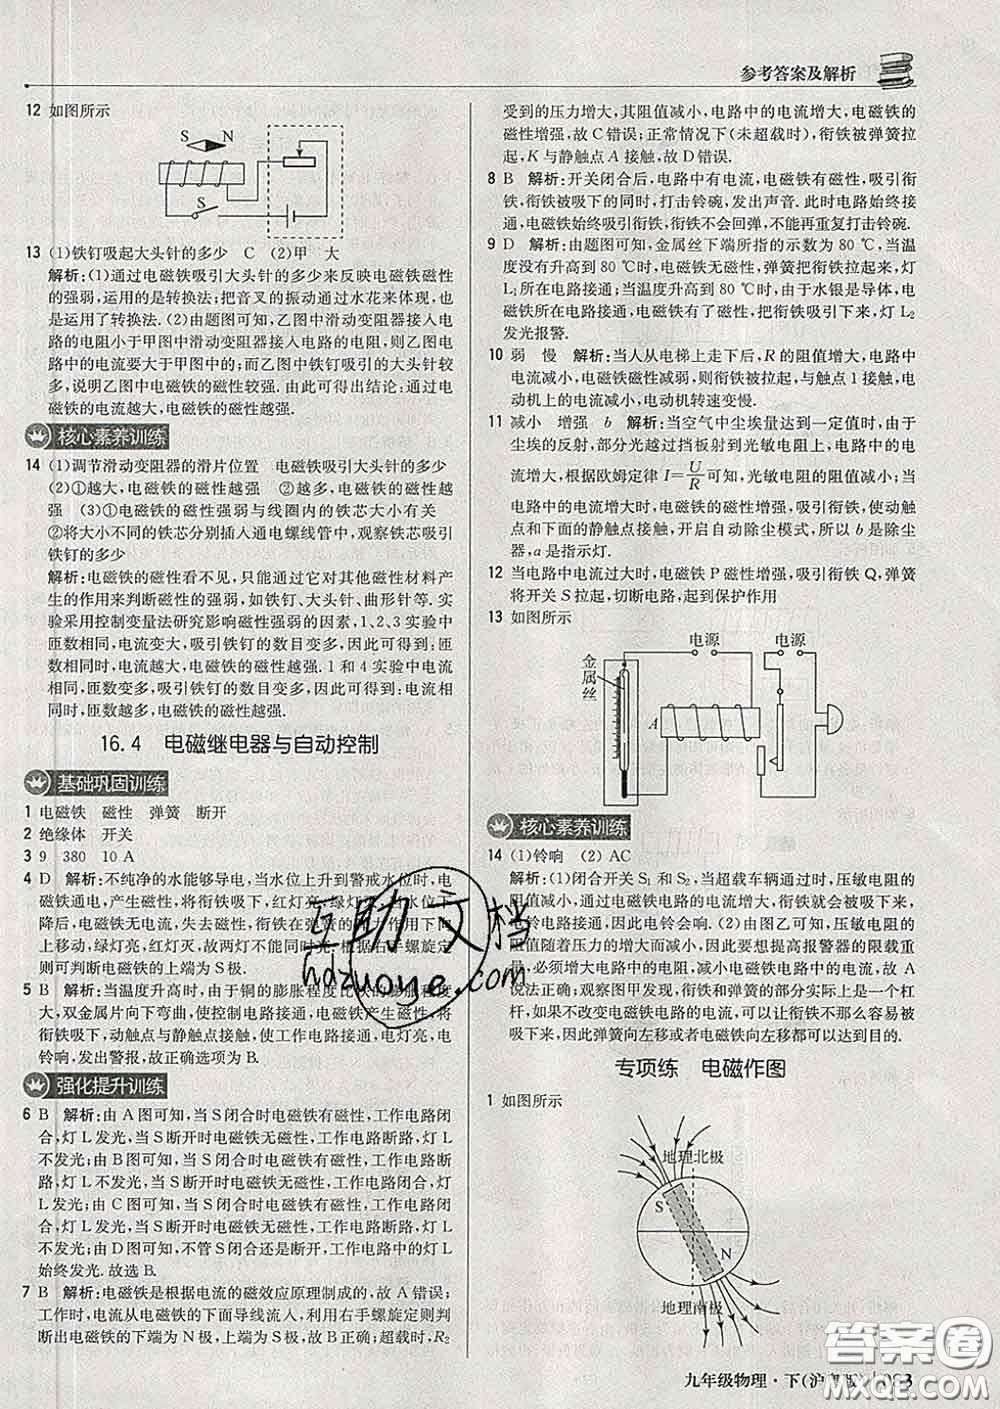 参考答案及解析
12 如图所示
S N
S
13 (1)铁钉吸起大头针的多少 C (2)甲 大
解析:(1)通过电磁铁吸引大头针的多少来反映电磁铁磁性
的强弱,运用的是转换法;把音叉的振动通过水花来体现,也
是运用了转换法.(2)由题图可知,乙图中滑动变阻器接入电
路的电阻小于甲图中滑动变阻器接入电路的电阻,则乙图电
路中的电流要大于甲图中的;而乙图中铁钉吸引的大头针较
多,说明乙图中电磁铁的磁性较强.由此可得出结论:通过电
磁铁的电流越大,电磁铁的磁性越强.
核心素养训练
14 (1)调节滑动变阻器的滑片位置 电磁铁吸引大头针的多少
(2)①越大,电磁铁的磁性越强 ②越多,电磁铁的磁性越
强 (3)①电磁铁的磁性强弱与线圈内的铁芯大小有关
②将大小不同的铁芯分别插入通电螺线管中,观察铁芯吸引
铁钉的多少
解析:电磁铁的磁性看不见,只能通过它对其他磁性材料产
生的作用来判断磁性的强弱,如铁钉、大头针、曲形针等.实
验采用控制变量法研究影响磁性强弱的因素,1、2、3实验中
匝数相同,电流变大,吸引铁钉的数目变多,因此可得到:匝
数相同时,电流越大,电磁铁的磁性越强.1和4实验中电流
相同,匝数变多,吸引铁钉的数目变多,因此可得到:电流相
同时,匝数越多,电磁铁的磁性越强.
16.4 电磁继电器与自动控制
基础巩固训练
1 电磁铁 磁性 弹簧 断开
2 绝缘体 开关
3 9 380 10 A
4 D 解析:不纯净的水能够导电,当水位上升到警戒水位时,电
磁铁通电,产生磁性,将衔铁吸下,红灯亮,绿灯灭,水位下
降后,电磁铁无电流,失去磁性,衔铁在弹簧的弹力作用下向
上移动,绿灯亮,红灯灭,故两灯不可能同时亮;根据右手螺旋定
则可判断电磁铁的上端为S极.
5 B 解析:当温度升高时,由于铜的膨胀程度比铁的膨胀程度
大,双金属片向下弯曲,使控制电路接通,电磁铁产生磁性,将
衔铁吸下,动触点与静触点接触,使工作电路接通,电灯亮,电
铃响,发出警报,故正确选项为B.
强化提升训练
6 B 解析:由A图可知,当S闭合时电磁铁有磁性,工作电路闭
合,灯L发光,当S断开时电磁铁无磁性,工作电路断路,灯L
不发光;由B图可知,当S闭合时电磁铁有磁性,工作电路断
路,灯L不发光,当S断开时电磁铁无磁性,工作电路闭合,灯
L发光;由C图可知,当S闭合时电磁铁有磁性,工作电路闭
合,灯L发光,当S断开时电磁铁无磁性,工作电路断路,灯L
不发光;由D图可知,不管S闭合还是断开,工作电路中的灯L
始终发光.故选B.
7 B 解析:电磁铁是根据电流的磁效应原理制成的,故A错误;
工作时,电流从电磁铁的下面导线流入,利用右手螺旋定则判
断出电磁铁的下端为N极,上端为S极,故B正确;超载时,R₂
受到的压力增大,其阻值减小,电路中的电流增大,电磁铁的
磁性增强,故C错误;正常情况下(未超载时),衔铁被弹簧拉
起,K与静触点A接触,故D错误.
8 B 解析:开关闭合后,电路中有电流,电磁铁有磁性,吸引衔
铁,衔铁被吸下的同时,打击铃碗,发出声音.此时电路始终接
通,电磁铁始终吸引衔铁,衔铁不会回弹,不能再重复打击铃碗.
9 D 解析:由题图可知,金属丝下端所指的示数为80 ℃,当温
度没有升高到80 ℃时,电磁铁无磁性,弹簧把衔铁拉起来,灯
L₁所在电路接通;当温度升高到80 ℃时,由于水银是导体,电
磁铁所在电路接通,电磁铁有了磁性,把衔铁吸引下来,灯L₂
发光报警.
10 弱 慢 解析:当人从电梯上走下后,R的阻值增大,电路中
电流减小,电磁铁磁性减弱,则衔铁被拉起,与触点1接触,电
动机上的电流减小,电动机转速变慢.
11 减小 增强 b 解析:当空气中尘埃量达到一定值时,由于
尘埃的反射,部分光越过挡板射到光敏电阻上,电路中的电
流增大,根据欧姆定律 I=U/R 可知,光敏电阻的阻值减小;当
电路中的电流增大时,电磁铁的磁性增强,吸引衔铁,使动触
点和下面的静触点接触,开启自动除尘模式,所以b是除尘
器,a是指示灯.
12 当电路中电流过大时,电磁铁P磁性增强,吸引衔铁Q,弹簧
将开关S拉起,切断电路,起到保护作用
13 如图所示
电源 电源
金属丝
A
核心素养训练
14 (1)铃响 (2) AC
解析:(1)闭合开关S₁和S₂,当超载车辆通过时,压敏电阻的
阻值变小,电路电流变大,电磁铁磁性增强,衔铁就会被吸下来,
电铃电路接通,因此电铃会响.(2)由图乙可知,压敏电阻的
阻值随着压力的增大而减小,因此要想提高报警器的限载重
量,必须增大电路中的电阻,减小电磁铁电路中的电流,故A
说法正确;观察图甲发现,衔铁和弹簧的部分实际上是一个杠
杆,如果不改变电磁铁电路的电流,可以让衔铁不那么容易被
吸下来,因此弹簧向左移或者电磁铁向左移都可以达到目的.
专项练 电磁作图
1 如图所示
地理北极
S
N
地理南极
九年级物理·下(沪粤版)
互助文档
hdzuoye.com
答案圈
MXQE.COM